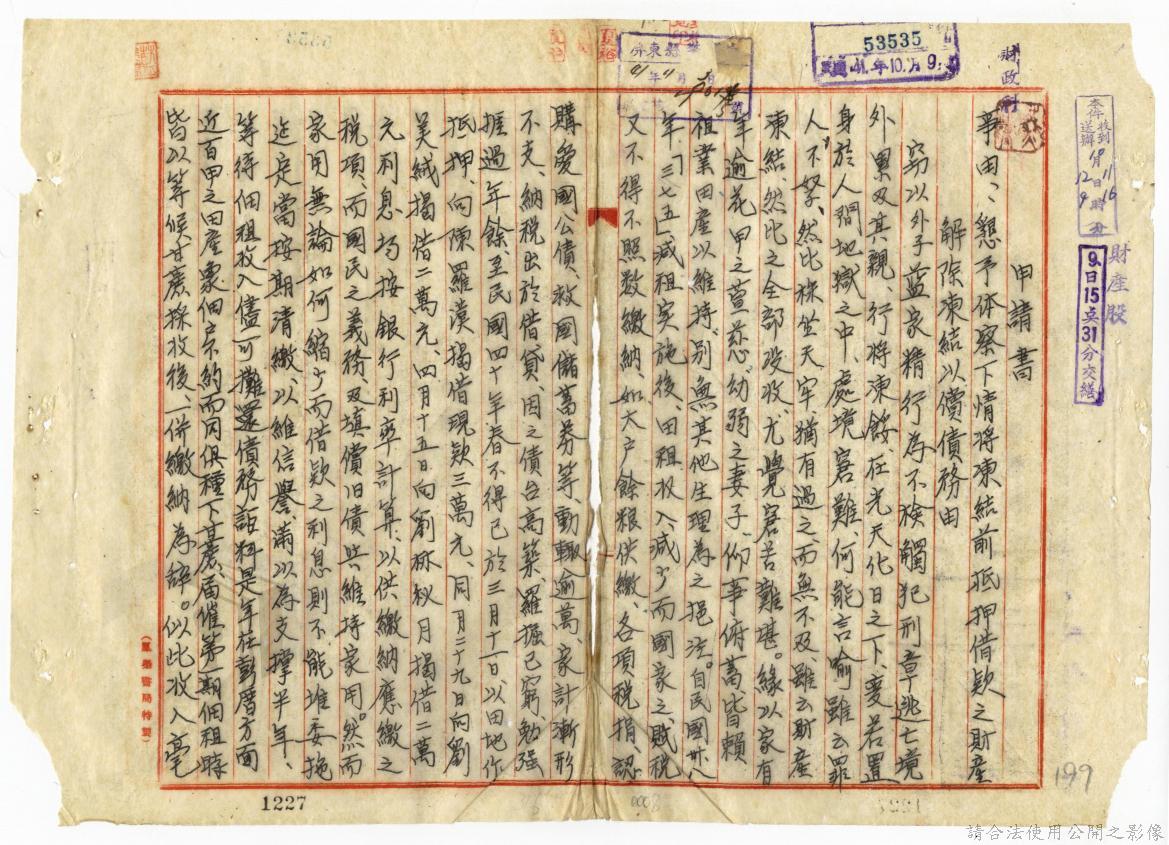 申請書
事由、懇予体察下情將凍結前抵押借欵之財產
解除凍結以償債務由
窃以外子藍家精行為不檢觸犯刑章逃亡境
外累及其親、行將凍餒、在光天化日之下、妻若置
身於人間地獄之中、處境窘難、何能言喻雖云罪
人不孥、然比株坐天牢、猶有過之、而無不及、雖云財產
凍結、然比之全部没收、尤覺窘苦難堪。緣以家有
年逾花甲之萱慈、幼弱之妻子、仰事俯蓄、皆賴
祖業田產以維持、別無其他生理為之挹注。自民國卅八
年、「三七五」減租实施後、田租收入、減少而國家之賦稅
又不得不照数繳納、如大户餘粮供繳、各項稅捐、認
購愛國公債、救國儲蓄券等、動輒逾萬、家計漸形
不支、納稅出於借貸、因之債台高築、羅掘已窮、勉强
捱過年餘、至民國四十年春不得已於三月十一日、以田地作
抵押、向陳羅漢揭借現欵三萬元、同月二十九日向劉
美絨揭借二萬元、四月十五日向劉秋月揭借二萬
元利息均按銀行利率計算、以供繳納應繳之
稅項、而國民之義務、及填償旧債與維持家用。然而
家用無論如何縮少而借欵之利息則不能堆委拖
迄定當按期清繳、以維信譽、滿以為支撑半年、
等得佃租收入儘可攤還債務詎料是年在彭厝方面
近百甲之田產象佃户不約而同俱種下甘蔗、届催第一期佃租時
皆以等候甘蔗採收後、一併繳納為辞。似此收入毫
財政科
財產股
53535
民國41.年10.月9.
屏東縣
本件收到
送辦
9日15点31分交繕
1227
199
請合法使用公開之影像